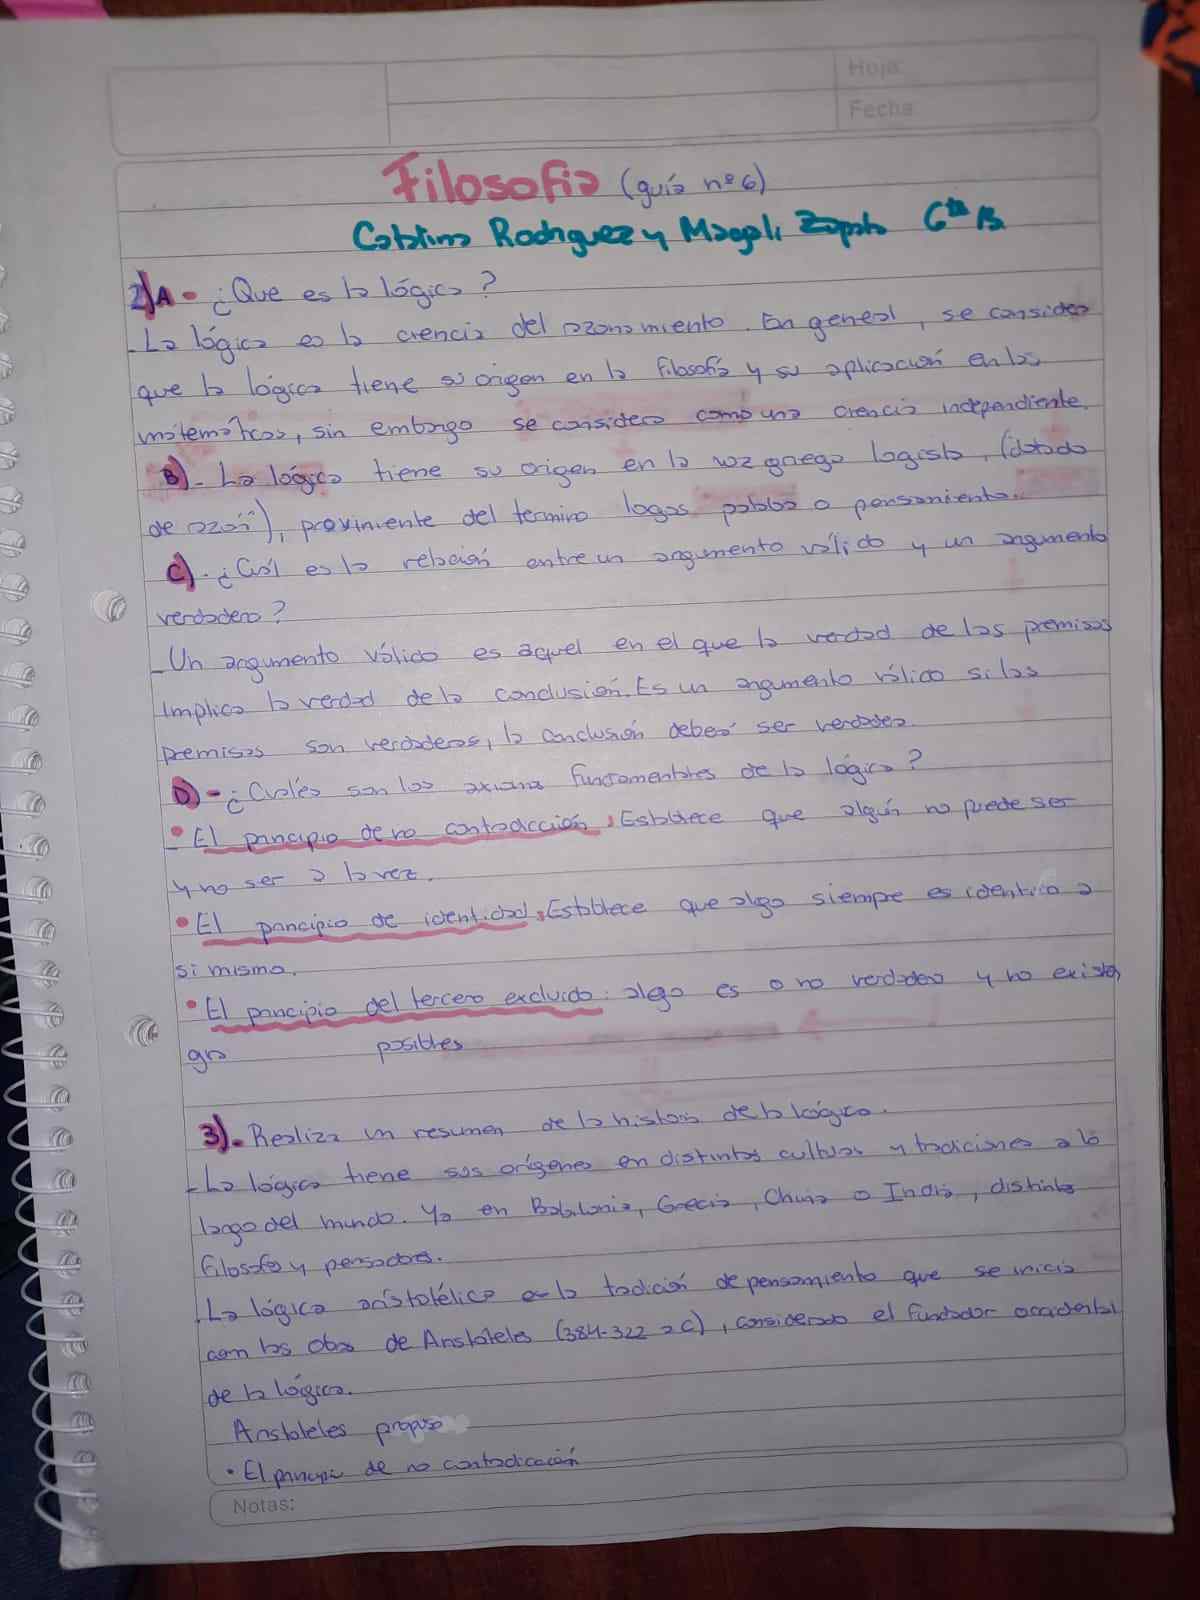 Hoja:
Fecha:
Filosofia (guía nº6)
Catalina Rodriguez y Magali Zapata 6to B
2)A- ¿Que es la lógica?
-La lógica es la ciencia del razonamiento. En general, se considera
que la lógica tiene su origen en la filosofía y su aplicación en las
matemáticas, sin embargo se considera como una ciencia independiente.
B)- La lógica tiene su origen en la voz griega logista, (dotado
de razón), proviniente del termino logos palabra o pensamiento.
C)-¿Cuál es la relación entre un argumento válido y un argumento
verdadero?
-Un argumento válido es aquel en el que la verdad de las premisas
implica la verdad de la conclusión. Es un argumento válido si las
premisas son verdaderas, la conclusión deberá ser verdadera.
D)-¿Cuáles son los axioma fundamentales de la lógica?
-El principio de no contradicción: Establece que algún no puede ser
y no ser a la vez.
• El principio de identidad: Establece que algo siempre es identico a
si mismo.
• El principio del tercero excluido: algo es o no verdadero y no existe
posibles
3)- Realiza un resumen de la historia de la lógica.
-La lógica tiene sus orígenes en distintas culturas y tradiciones a lo
largo del mundo. Ya en Babilonia, Grecia, China o India, distinta
filosofo y pensadores.
La lógica aristotélica es la tradición de pensamiento que se inicia
con las obra de Aristoteles (384-322 a C), considerado el fundador occidental
de la lógica.
Aristoteles propuso
• El principi de no contradicación
Notas: